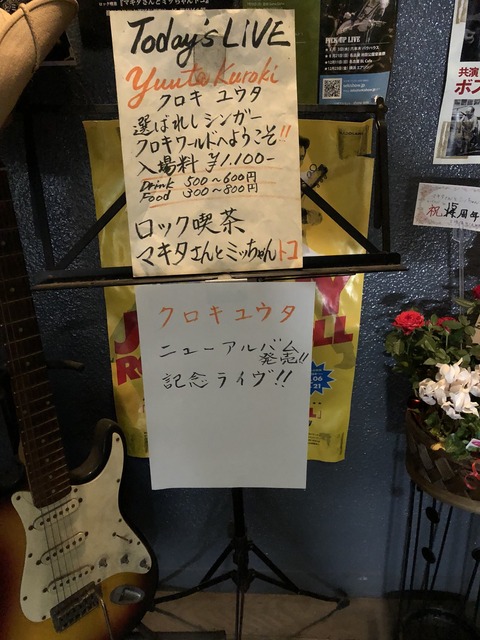 Today's LIVE
Yuuta Kuroki
クロキ ユウタ
選ばれしシンガー
クロキワールドへようこそ!!
入場料 ¥1.100-
Drink 500~600円
Food 300~800円
ロック喫茶
マキタさんとミッちゃんトコ
クロキユウタ
ニューアルバム
発売!!
記念ライヴ!!
PICK UP LIVE
共演
ボス
祝
周年